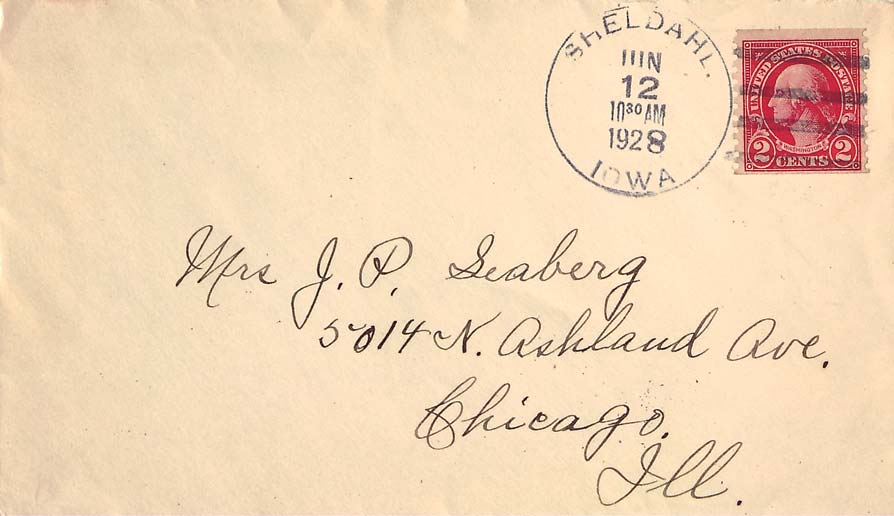 SHELDAHL.
JUN
12
10 30 AM
1928
IOWA
UNITED STATES POSTAGE
WASHINGTON
2 CENTS 2
Mrs J. P. Seaberg
5014 N. Ashland Ave.
Chicago,
Ill.